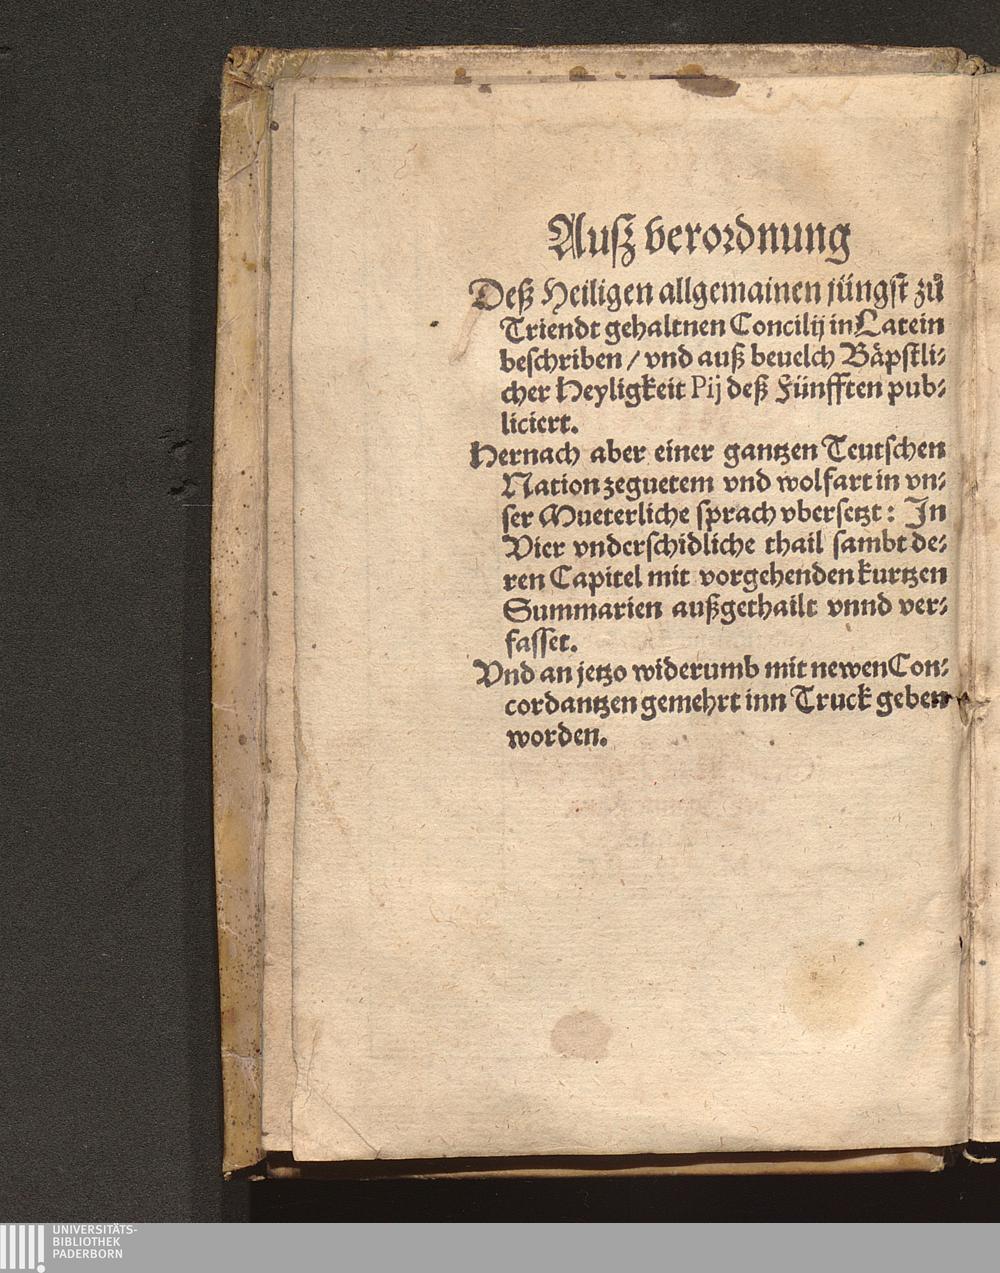 Auſz verordnung
Deß Heiligen allgemainen jüngſt zů
Triendt gehaltnen Concilij in Latein
beſchriben / vnd auß beuelch Bäpſtli⸗
cher Heyligkeit Pij deß Fünfften pub⸗
liciert.
Hernach aber einer gantzen Teutſchen
Nation zeguetem vnd wolfart in vn⸗
ſer Mueterliche ſprach vberſetzt: In
Vier vnderſchidliche thail ſambt de⸗
ren Capitel mit vorgehenden kurtzen
Summarien außgethailt vnnd ver⸗
faſſet.
Vnd an jetzo widerumb mit newen Con⸗
cordantzen gemehrt inn Truck geben
worden.
UNIVERSITÄTS-
BIBLIOTHEK
PADERBORN